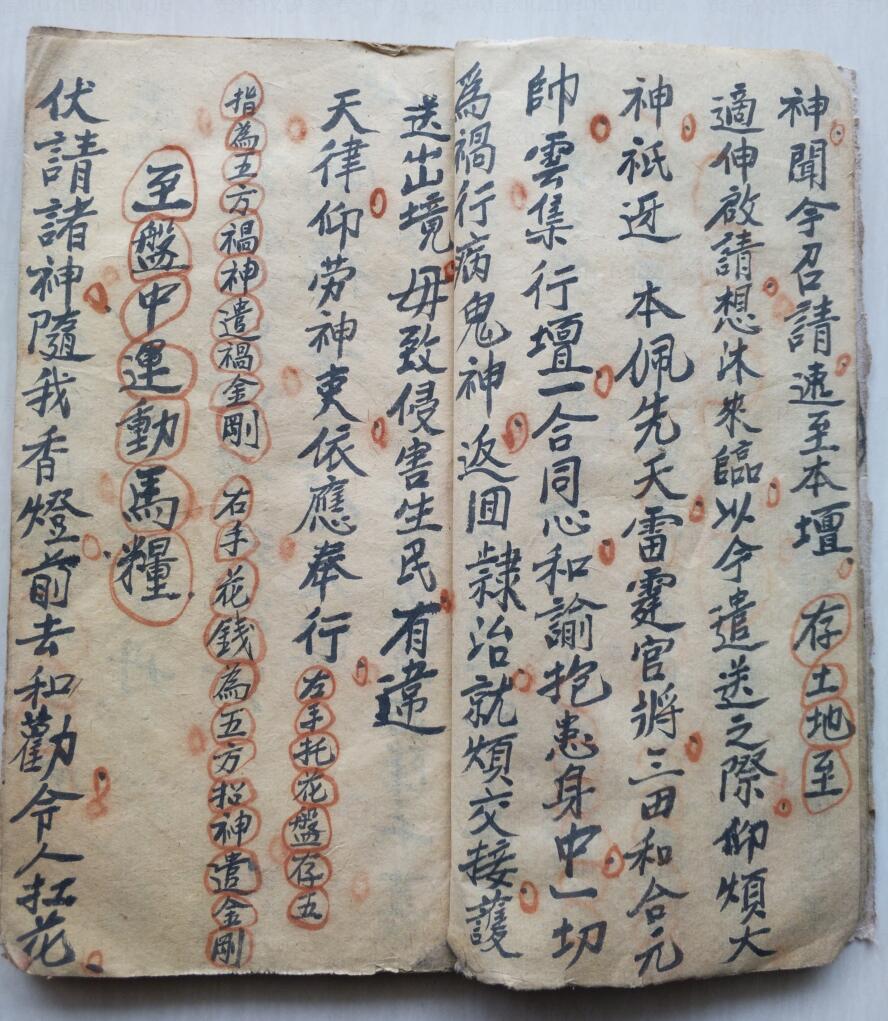 神聞今召請速至本壇 存土地至
適伸啟請想沐來臨以今遣送之際仰煩大
神祇迓 本佩先天雷霆官將三田和合元
帥雲集行壇一合同心和諭抱患身中一切
為禍行病鬼神返回隸治就煩交接護
送出境毋致侵害生民有違
天律仰劳神吏依應奉行 左手托花盤存五
指為五方禍神遣禍金剛 右手花錢為五方招神遣金剛
至盤中運動馬糧
伏請諸神隨我香燈前去和勸令人扛花